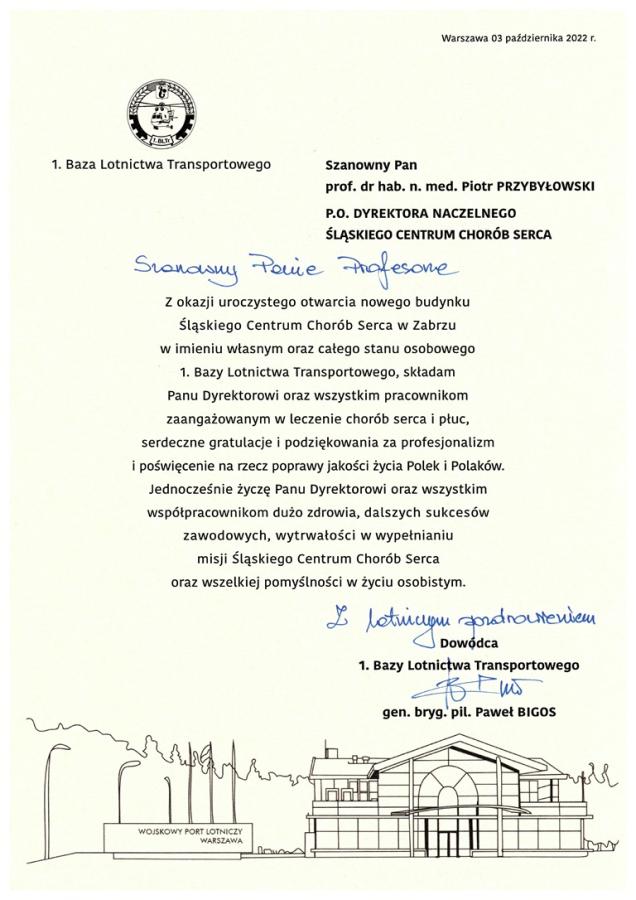 Warszawa 03 października 2022 r.
1. BLTr
1. Baza Lotnictwa Transportowego
Szanowny Pan
prof. dr hab. n. med. Piotr PRZYBYŁOWSKI
P.O. DYREKTORA NACZELNEGO
ŚLĄSKIEGO CENTRUM CHORÓB SERCA
Szanowny Panie Profesorze
Z okazji uroczystego otwarcia nowego budynku
Śląskiego Centrum Chorób Serca w Zabrzu
w imieniu własnym oraz całego stanu osobowego
1. Bazy Lotnictwa Transportowego, składam
Panu Dyrektorowi oraz wszystkim pracownikom
zaangażowanym w leczenie chorób serca i płuc,
serdeczne gratulacje i podziękowania za profesjonalizm
i poświęcenie na rzecz poprawy jakości życia Polek i Polaków.
Jednocześnie życzę Panu Dyrektorowi oraz wszystkim
współpracownikom dużo zdrowia, dalszych sukcesów
zawodowych, wytrwałości w wypełnianiu
misji Śląskiego Centrum Chorób Serca
oraz wszelkiej pomyślności w życiu osobistym.
Z lotniczym pozdrowieniem
Dowódca
1. Bazy Lotnictwa Transportowego
gen. bryg. pil. Paweł BIGOS
WOJSKOWY PORT LOTNICZY
WARSZAWA